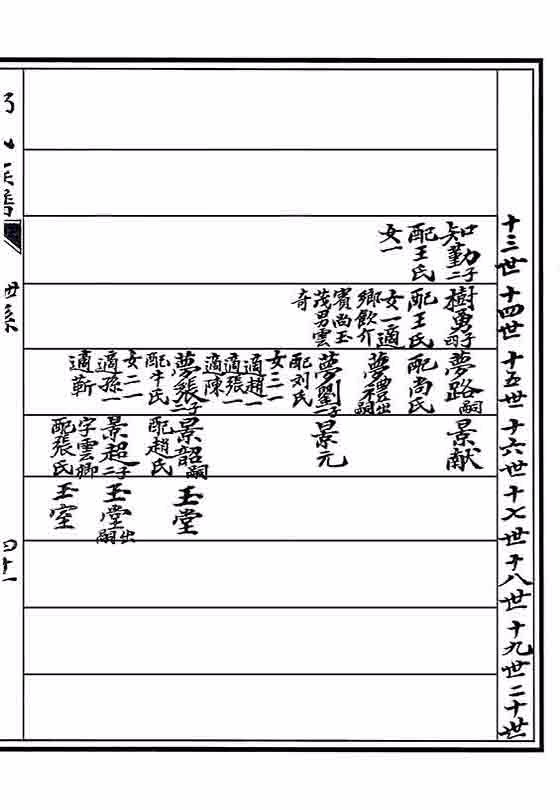 十三世
十四世
十五世
十六世
十七世
十八世
十九世
二十世
知勤二子
配王氏
女一
樹勇四子
配王氏
女一適
鄉飲介
賓尚玉
茂男雲
奇
夢路嗣
配尚氏
夢禮出嗣
夢劉一子
配刘氏
女三一
適趙一
適張一
適陳
夢張二子
配牛氏
女二一
適孫一
適靳
景献
景元
景韶嗣
配趙氏
景超二子
字雲卿
配張氏
玉堂
玉堂出嗣
玉室
族譜
世系
四十一